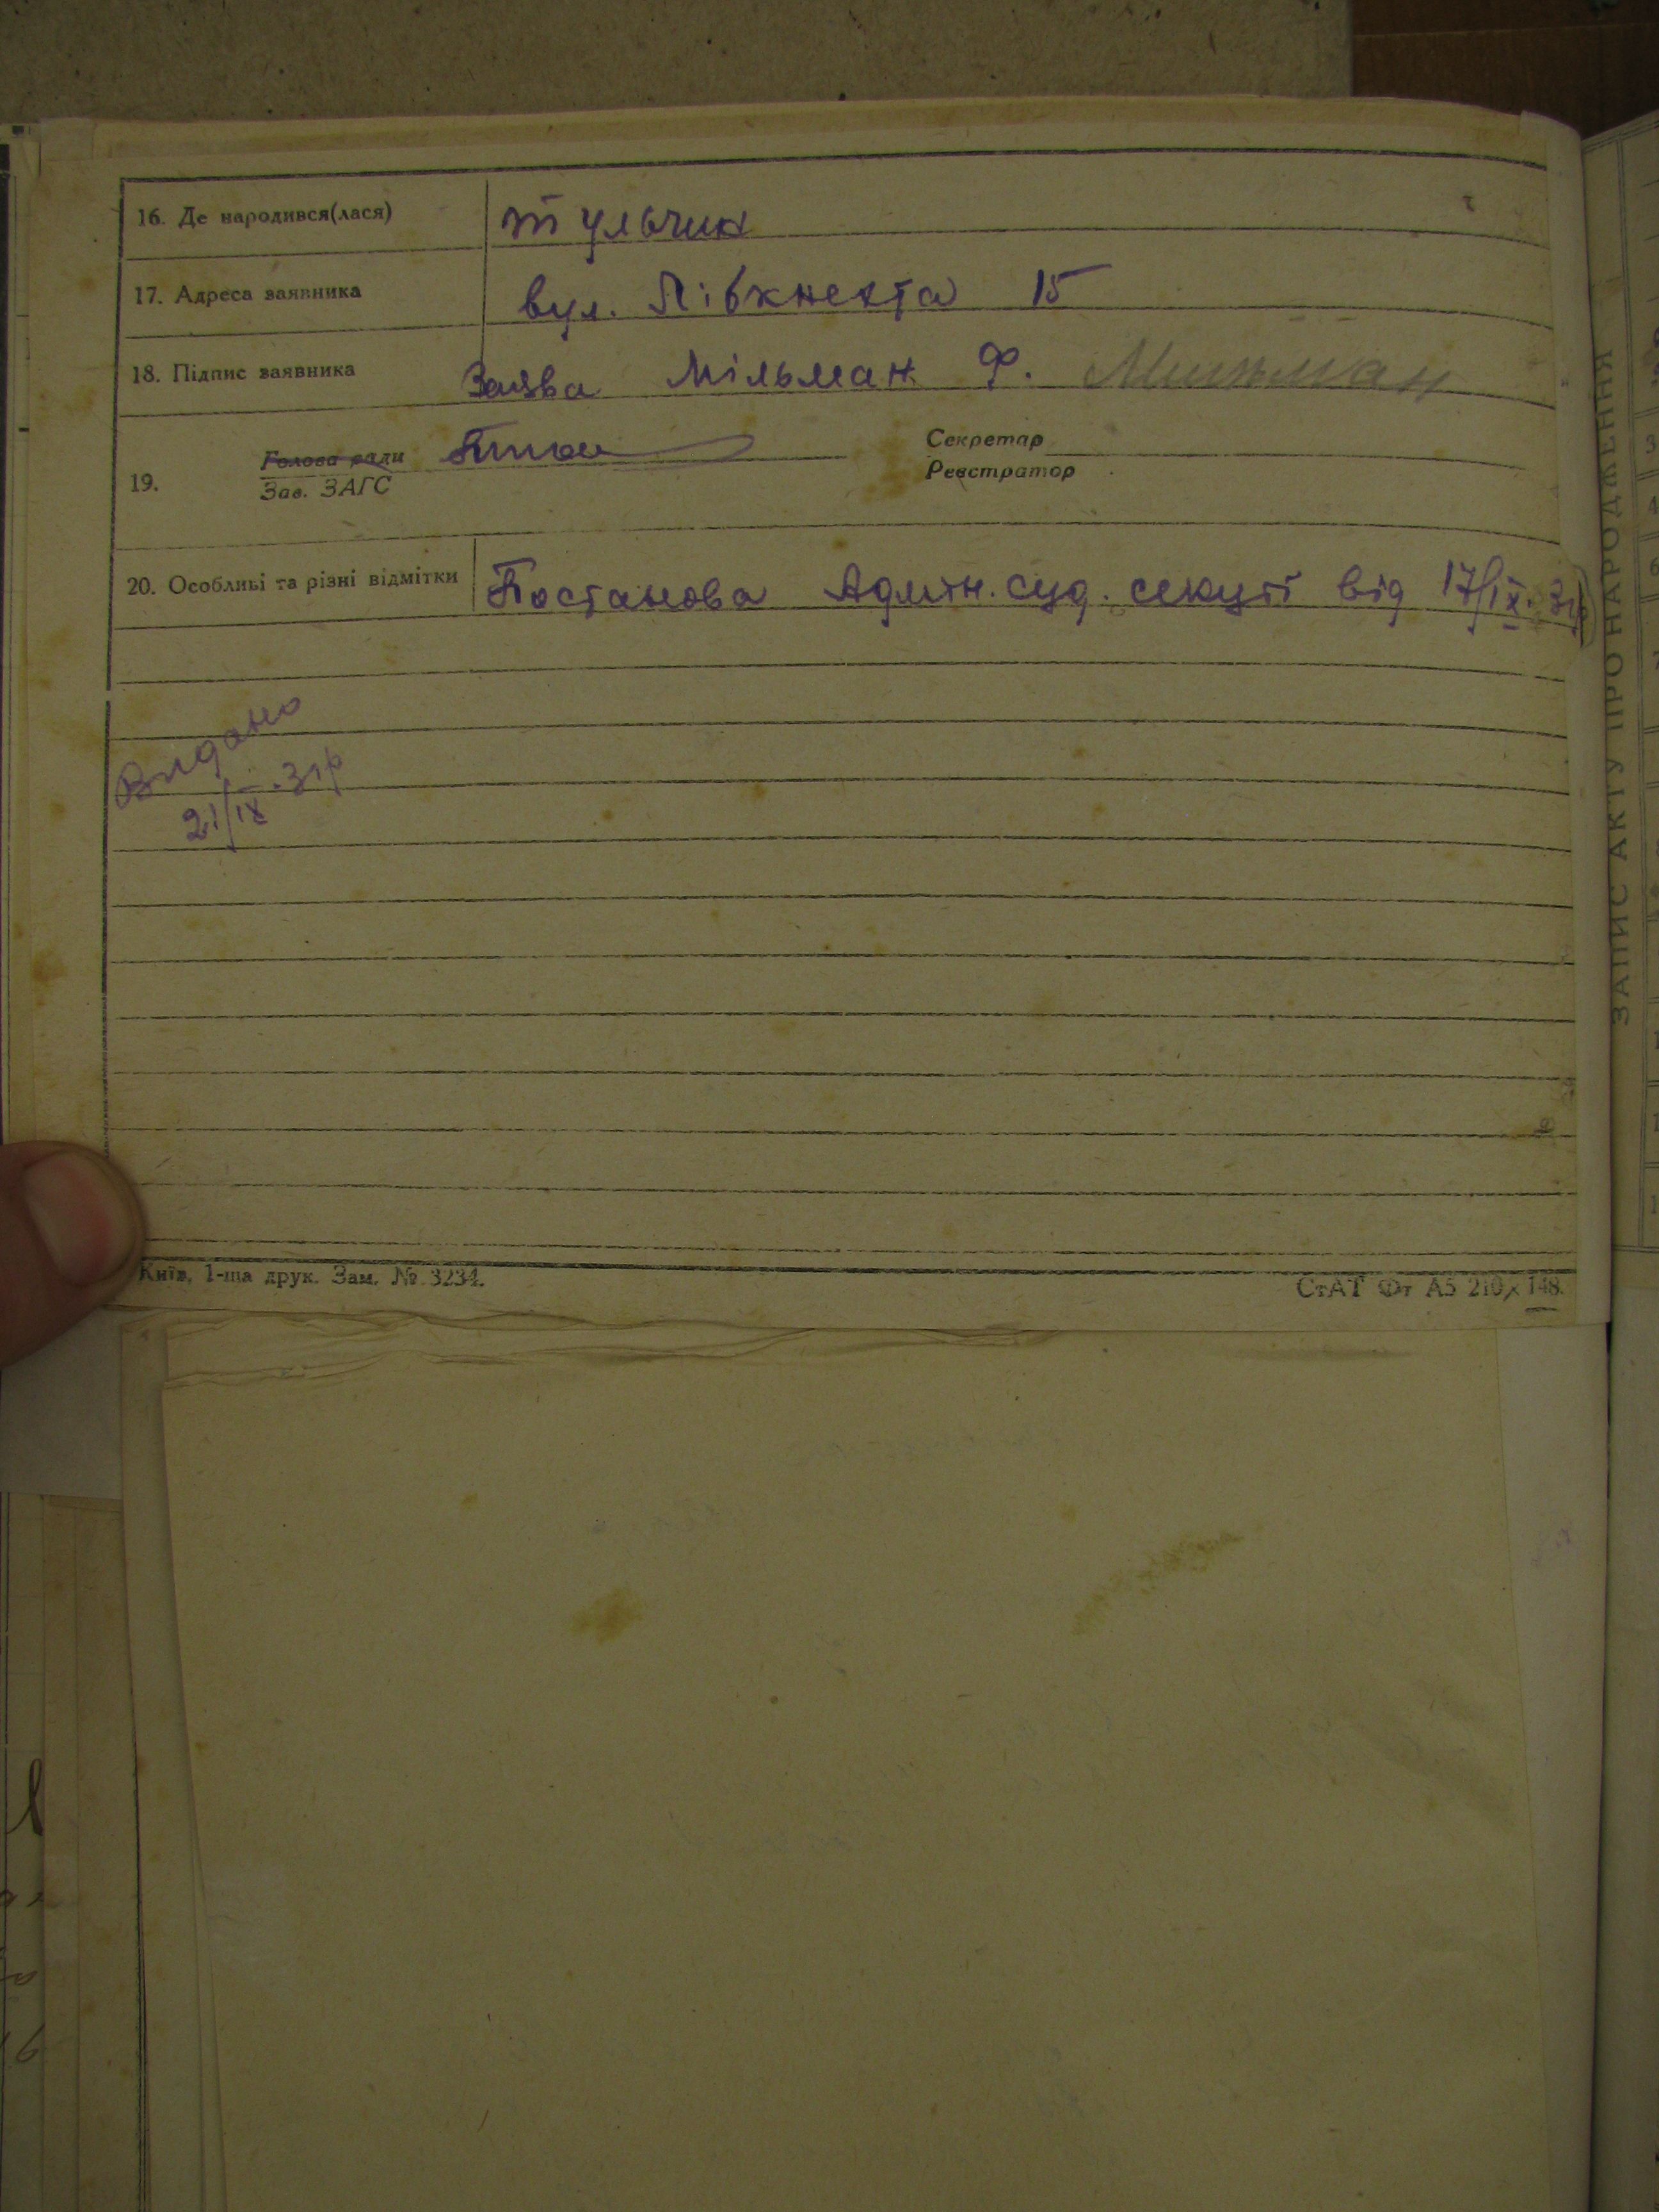 16. Де народився(лася) Тульчин
17. Адреса заявника вул. Лібкнехта 15
18. Підпис заявника Заява Мільман Ф. Мильман
19. Голова ради Секретар
Зав. ЗАГС Реєстратор
20. Особливі та різні відмітки Постанова Адмін. суд. секції від 17/IX. 31р
Видано
21/IX.31р
Київ, 1-ша друк. Зам. № 3234. СтАТ Фт А5 210×148.
ЗАПИС АКТУ ПРО НАРОДЖЕННЯ